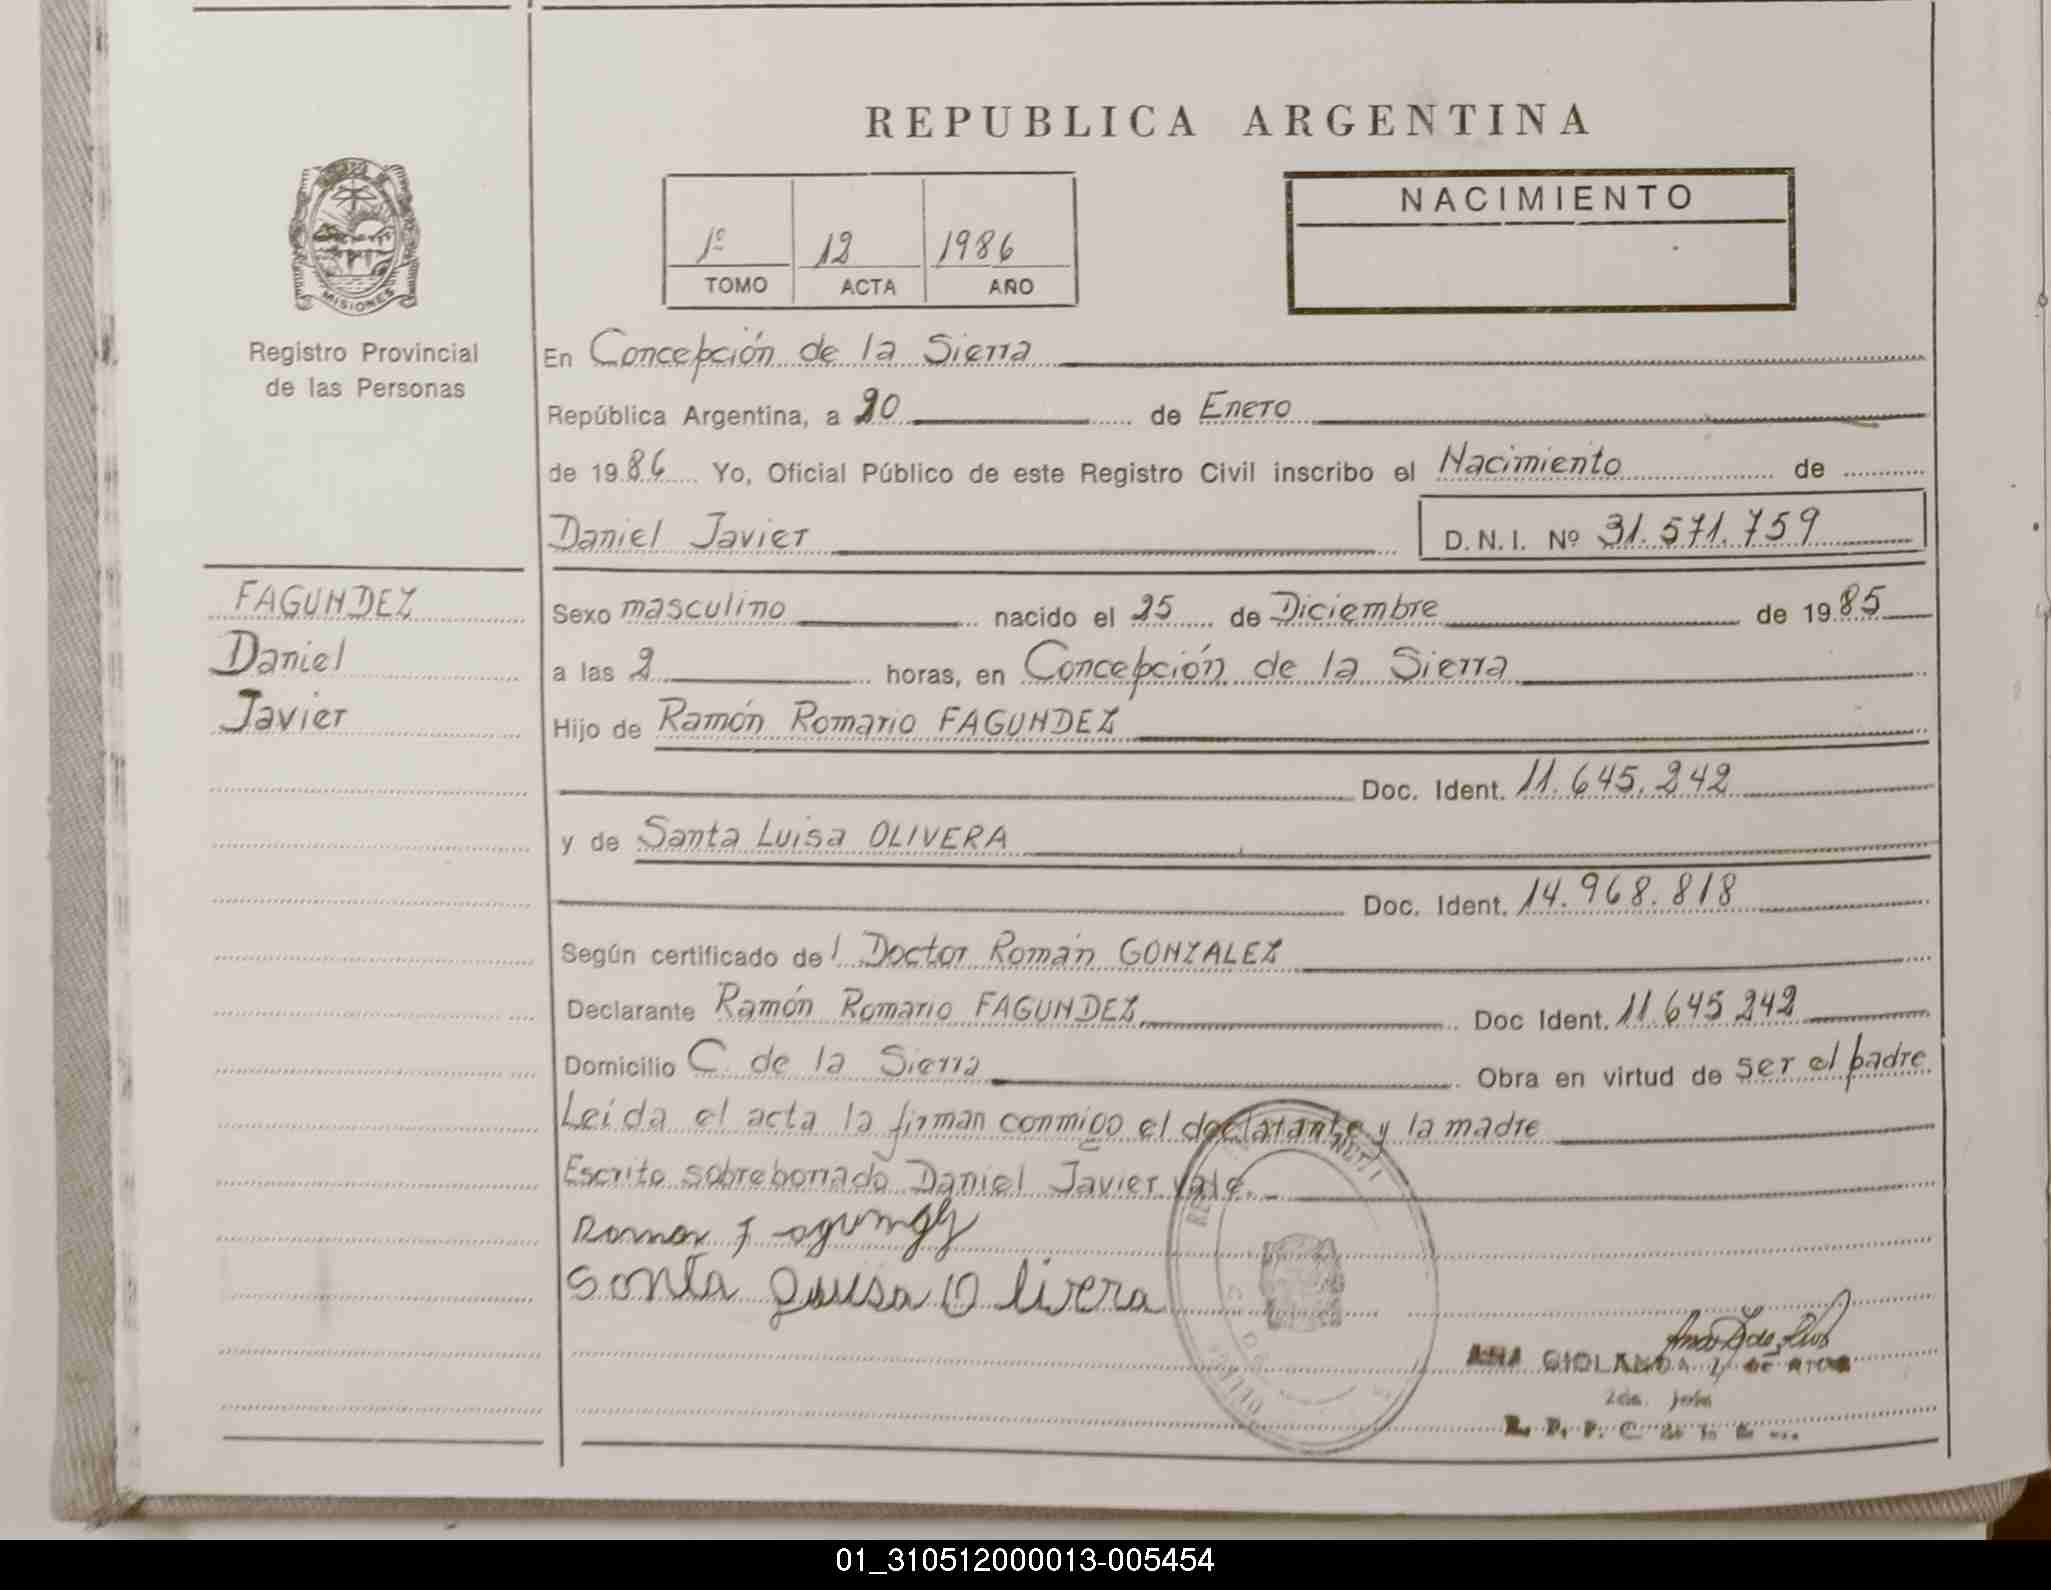 REPUBLICA ARGENTINA
NACIMIENTO
1º 12 1986
TOMO ACTA AÑO
MISIONES
Registro Provincial
de las Personas
En Concepción de la Sierra
República Argentina, a 20 de Enero
de 1986 Yo, Oficial Público de este Registro Civil inscribo el Nacimiento de
Daniel Javier D.N.I. Nº 31.571.759
FAGUNDEZ
Daniel
Javier
Sexo masculino nacido el 25 de Diciembre de 1985
a las 2 horas, en Concepción de la Sierra
Hijo de Ramón Romario FAGUNDEZ
Doc. Ident. 11.645.242
y de Santa Luisa OLIVERA
Doc. Ident. 14.968.818
Según certificado del Doctor Román GONZALEZ
Declarante Ramón Romario FAGUNDEZ Doc Ident. 11.645 242
Domicilio C. de la Sierra Obra en virtud de ser el padre
Leída el acta la firman conmigo el declarante y la madre
Escrito sobreborrado Daniel Javier vale.
Santa Luisa Olivera
01_310512000013-005454